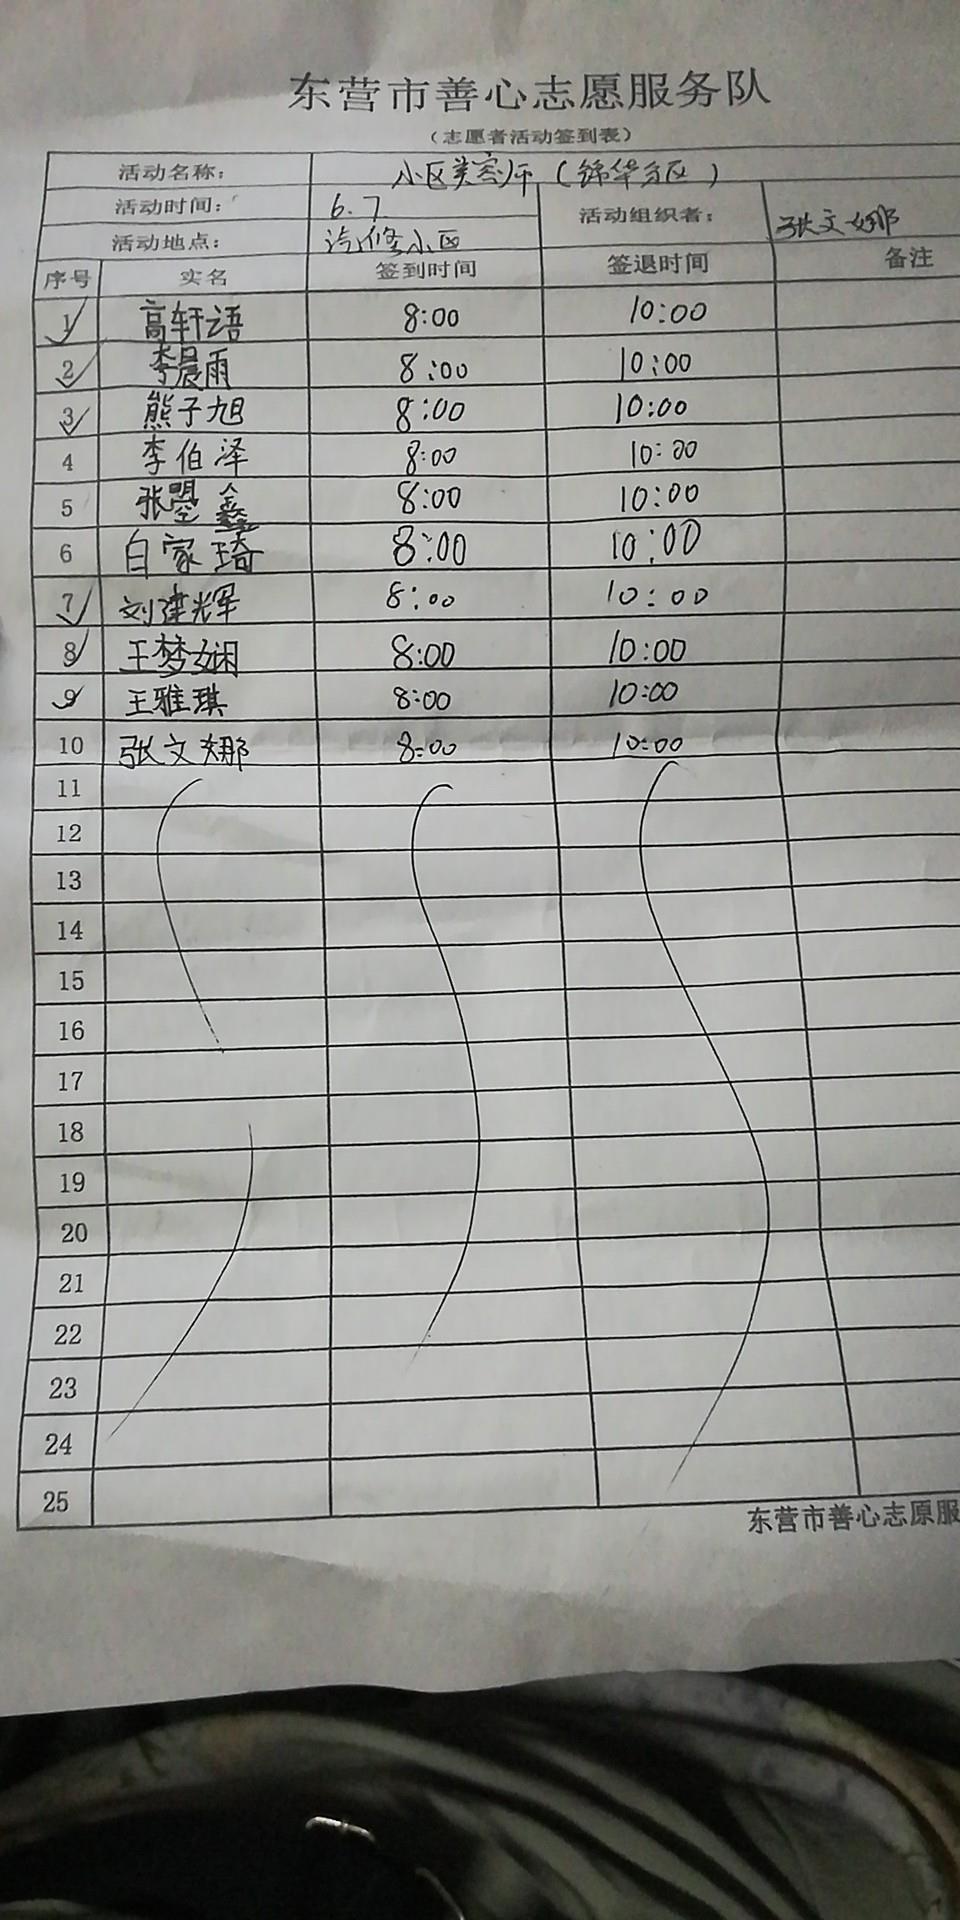 东营市善心志愿服务队
(志愿者活动签到表)
活动名称: 小区美容师(锦华分区)
活动时间: 6.7 活动组织者: 张文娜
活动地点: 汽修小区
序号 实名 签到时间 签退时间 备注
1 高轩语 8:00 10:00
2 李晨雨 8:00 10:00
3 熊子旭 8:00 10:00
4 李伯泽 8:00 10:00
5 张曌鑫 8:00 10:00
6 白家琦 8:00 10:00
7 刘建辉 8:00 10:00
8 王梦娴 8:00 10:00
9 王雅琪 8:00 10:00
10 张文娜 8:00 10:00
11
12
13
14
15
16
17
18
19
20
21
22
23
24
25
东营市善心志愿服